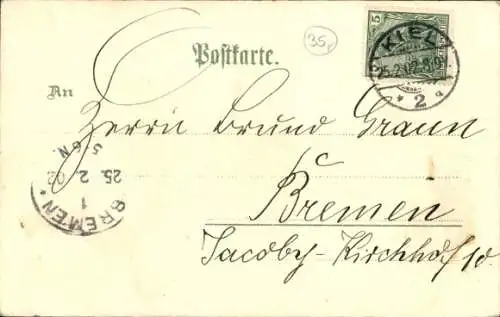 35,
5
KIEL
25.2.02.8-9V.
* 2 a
Postkarte.
An
Herrn Bruno Graun
Bremen
Jacoby-Kirchhof 10.
BREMEN *
1
25. 2. 02
5-6N.